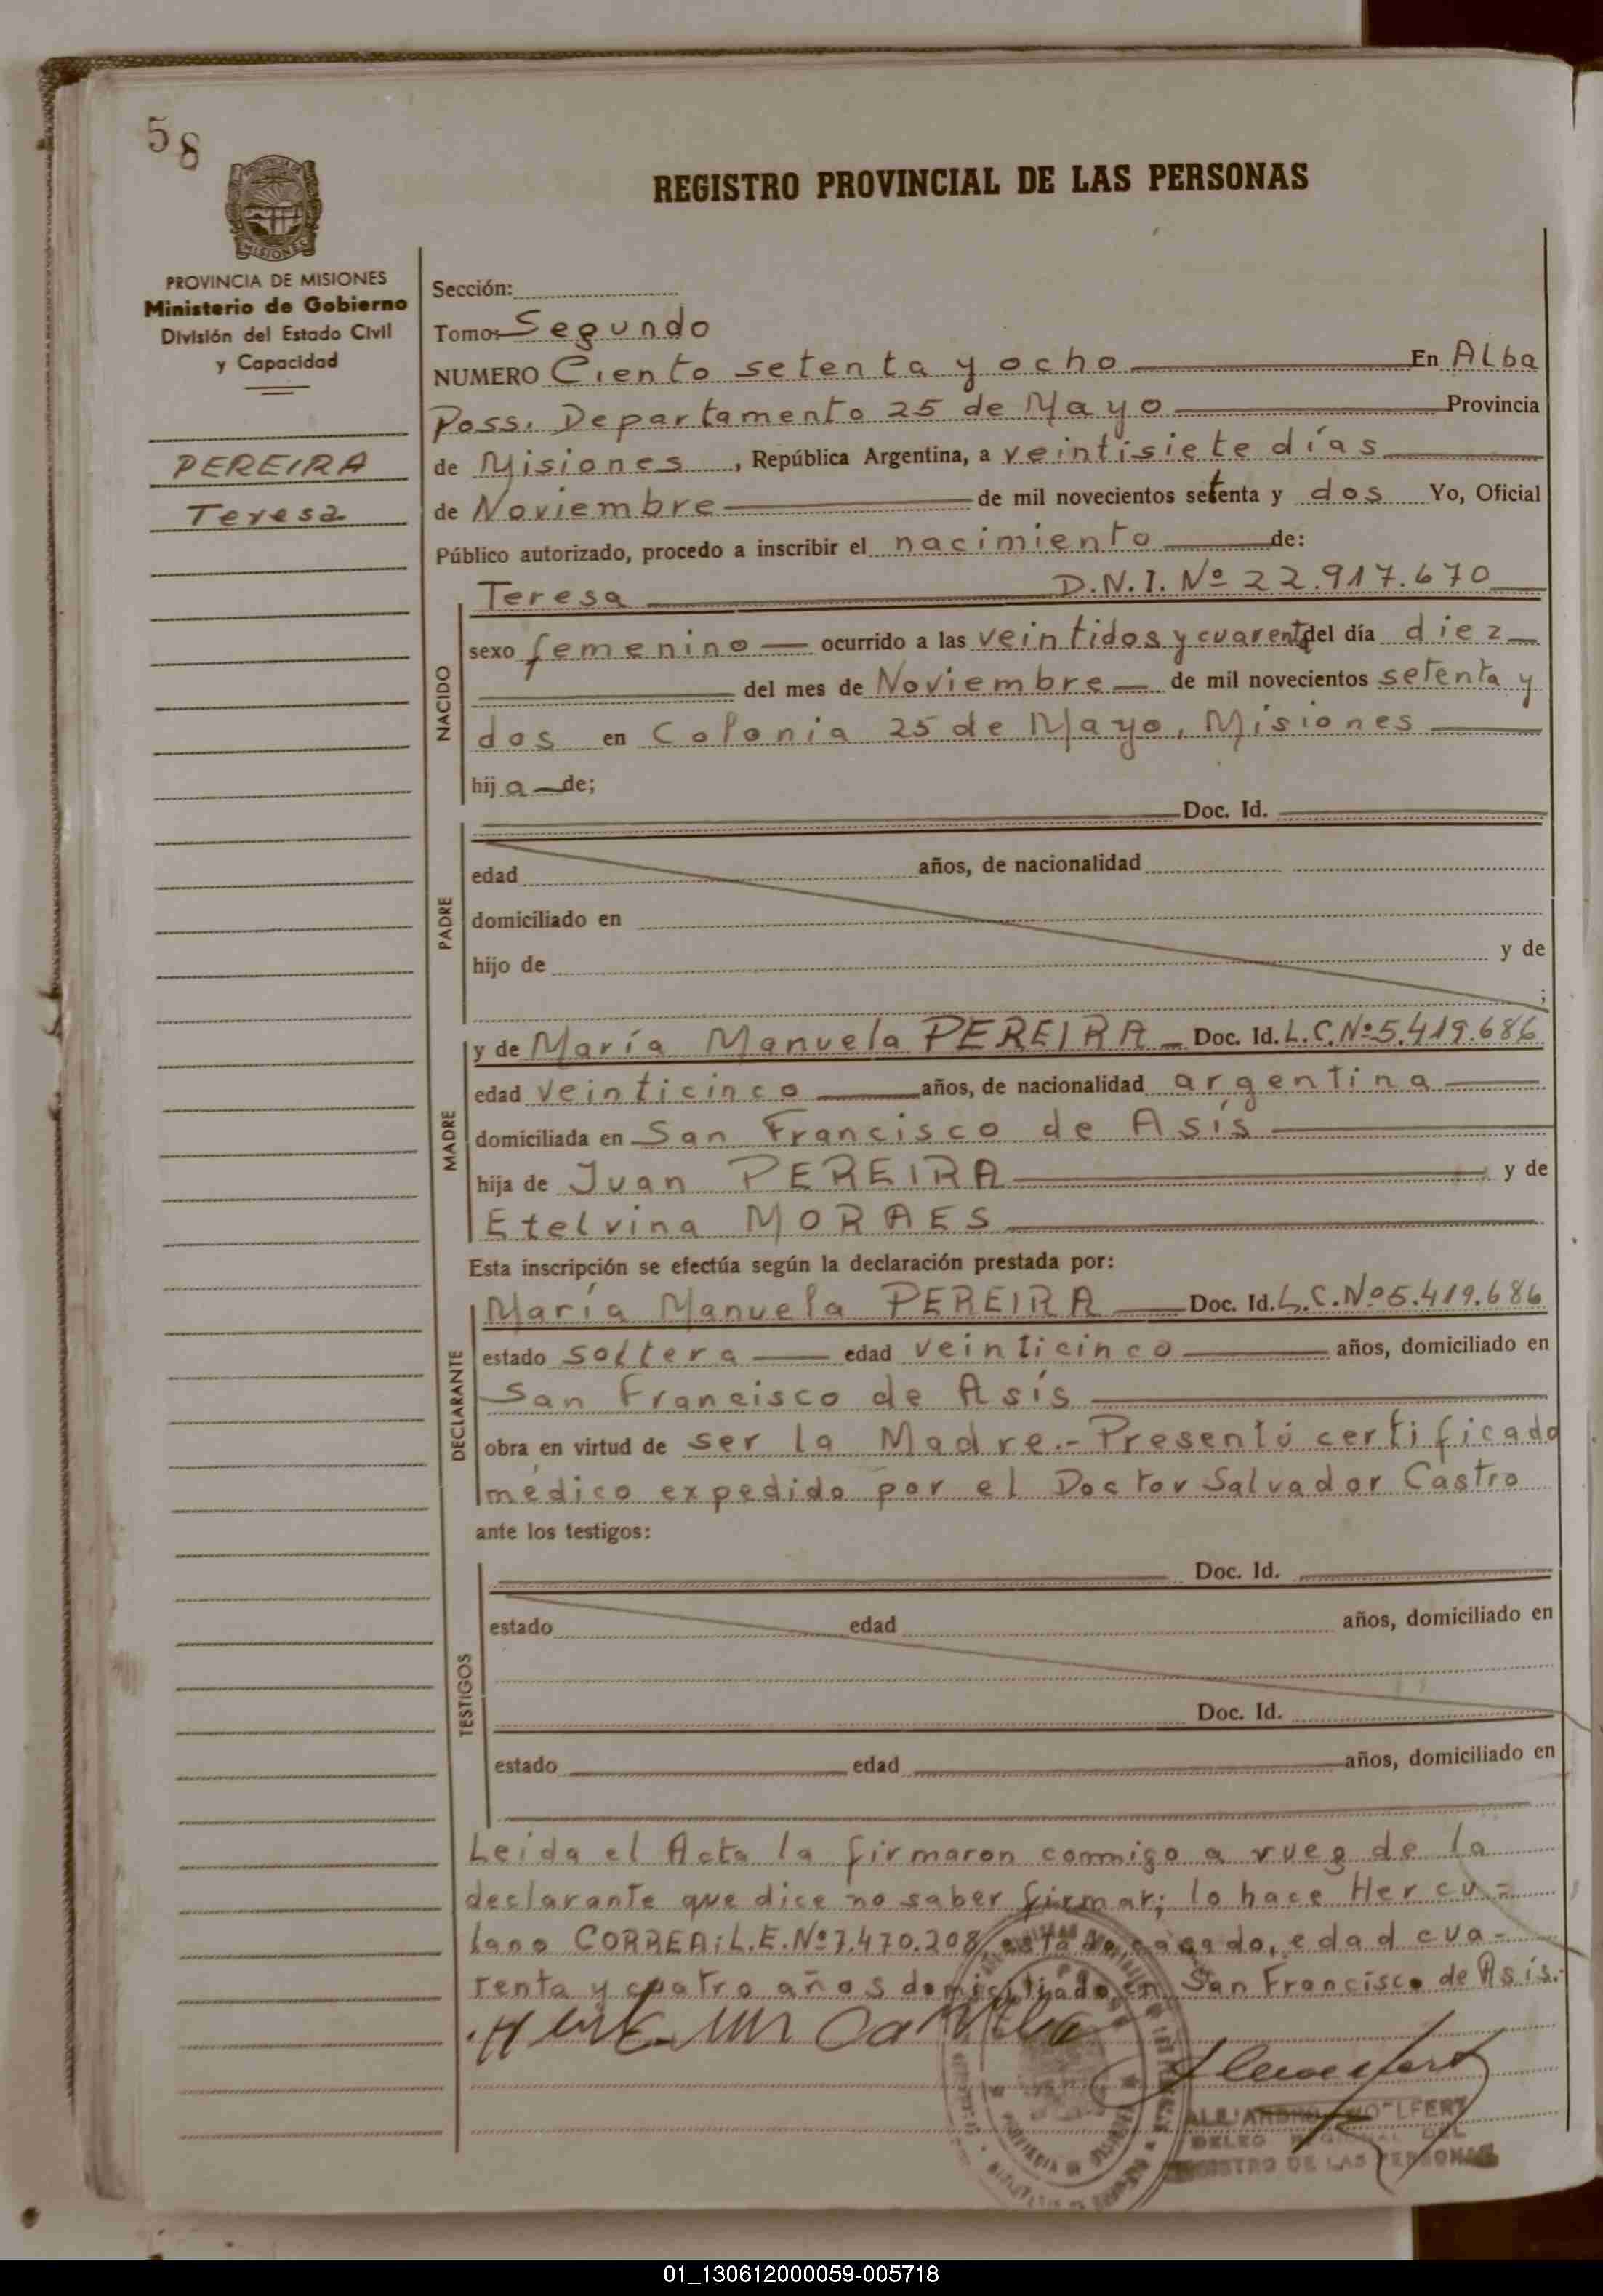 58
MISIONES
PROVINCIA DE MISIONES
Ministerio de Gobierno
División del Estado Civil
y Capacidad
PEREIRA
Teresa
REGISTRO PROVINCIAL DE LAS PERSONAS
Sección:
Tomo: Segundo
NUMERO Ciento setenta y ocho En Alba
Poss. Departamento 25 de Mayo Provincia
de Misiones, República Argentina, a veintisiete días
de Noviembre de mil novecientos setenta y dos Yo, Oficial
Público autorizado, procedo a inscribir el nacimiento de:
NACIDO
Teresa D.N.I. Nº 22.917.670
sexo femenino ocurrido a las veintidos y cuarenta del día diez
del mes de Noviembre de mil novecientos setenta y
dos en Colonia 25 de Mayo, Misiones
hij a de;
PADRE
Doc. Id.
edad años, de nacionalidad
domiciliado en
hijo de y de
;
MADRE
y de María Manuela PEREIRA Doc. Id. L.C.Nº5.419.686
edad veinticinco años, de nacionalidad argentina
domiciliada en San Francisco de Asís
hija de Juan PEREIRA y de
Etelvina MORAES
Esta inscripción se efectúa según la declaración prestada por:
DECLARANTE
María Manuela PEREIRA Doc. Id. L.C.Nº5.419.686
estado soltera edad veinticinco años, domiciliado en
San Francisco de Asís
obra en virtud de ser la Madre.- Presentó certificado
médico expedido por el Doctor Salvador Castro
ante los testigos:
TESTIGOS
Doc. Id.
estado edad años, domiciliado en
Doc. Id.
estado edad años, domiciliado en
Leida el Acta la firmaron conmigo a rueg de la
declarante que dice no saber firmar; lo hace Hercu-
lano CORREA; L.E.Nº7.470.208, estado casado, edad cua-
renta y cuatro años domiciliado en San Francisco de Asís.-
ALEJANDRO WOLFERT
DELEG REGIONAL DEL
REGISTRO DE LAS PERSONAS
01_130612000059-005718